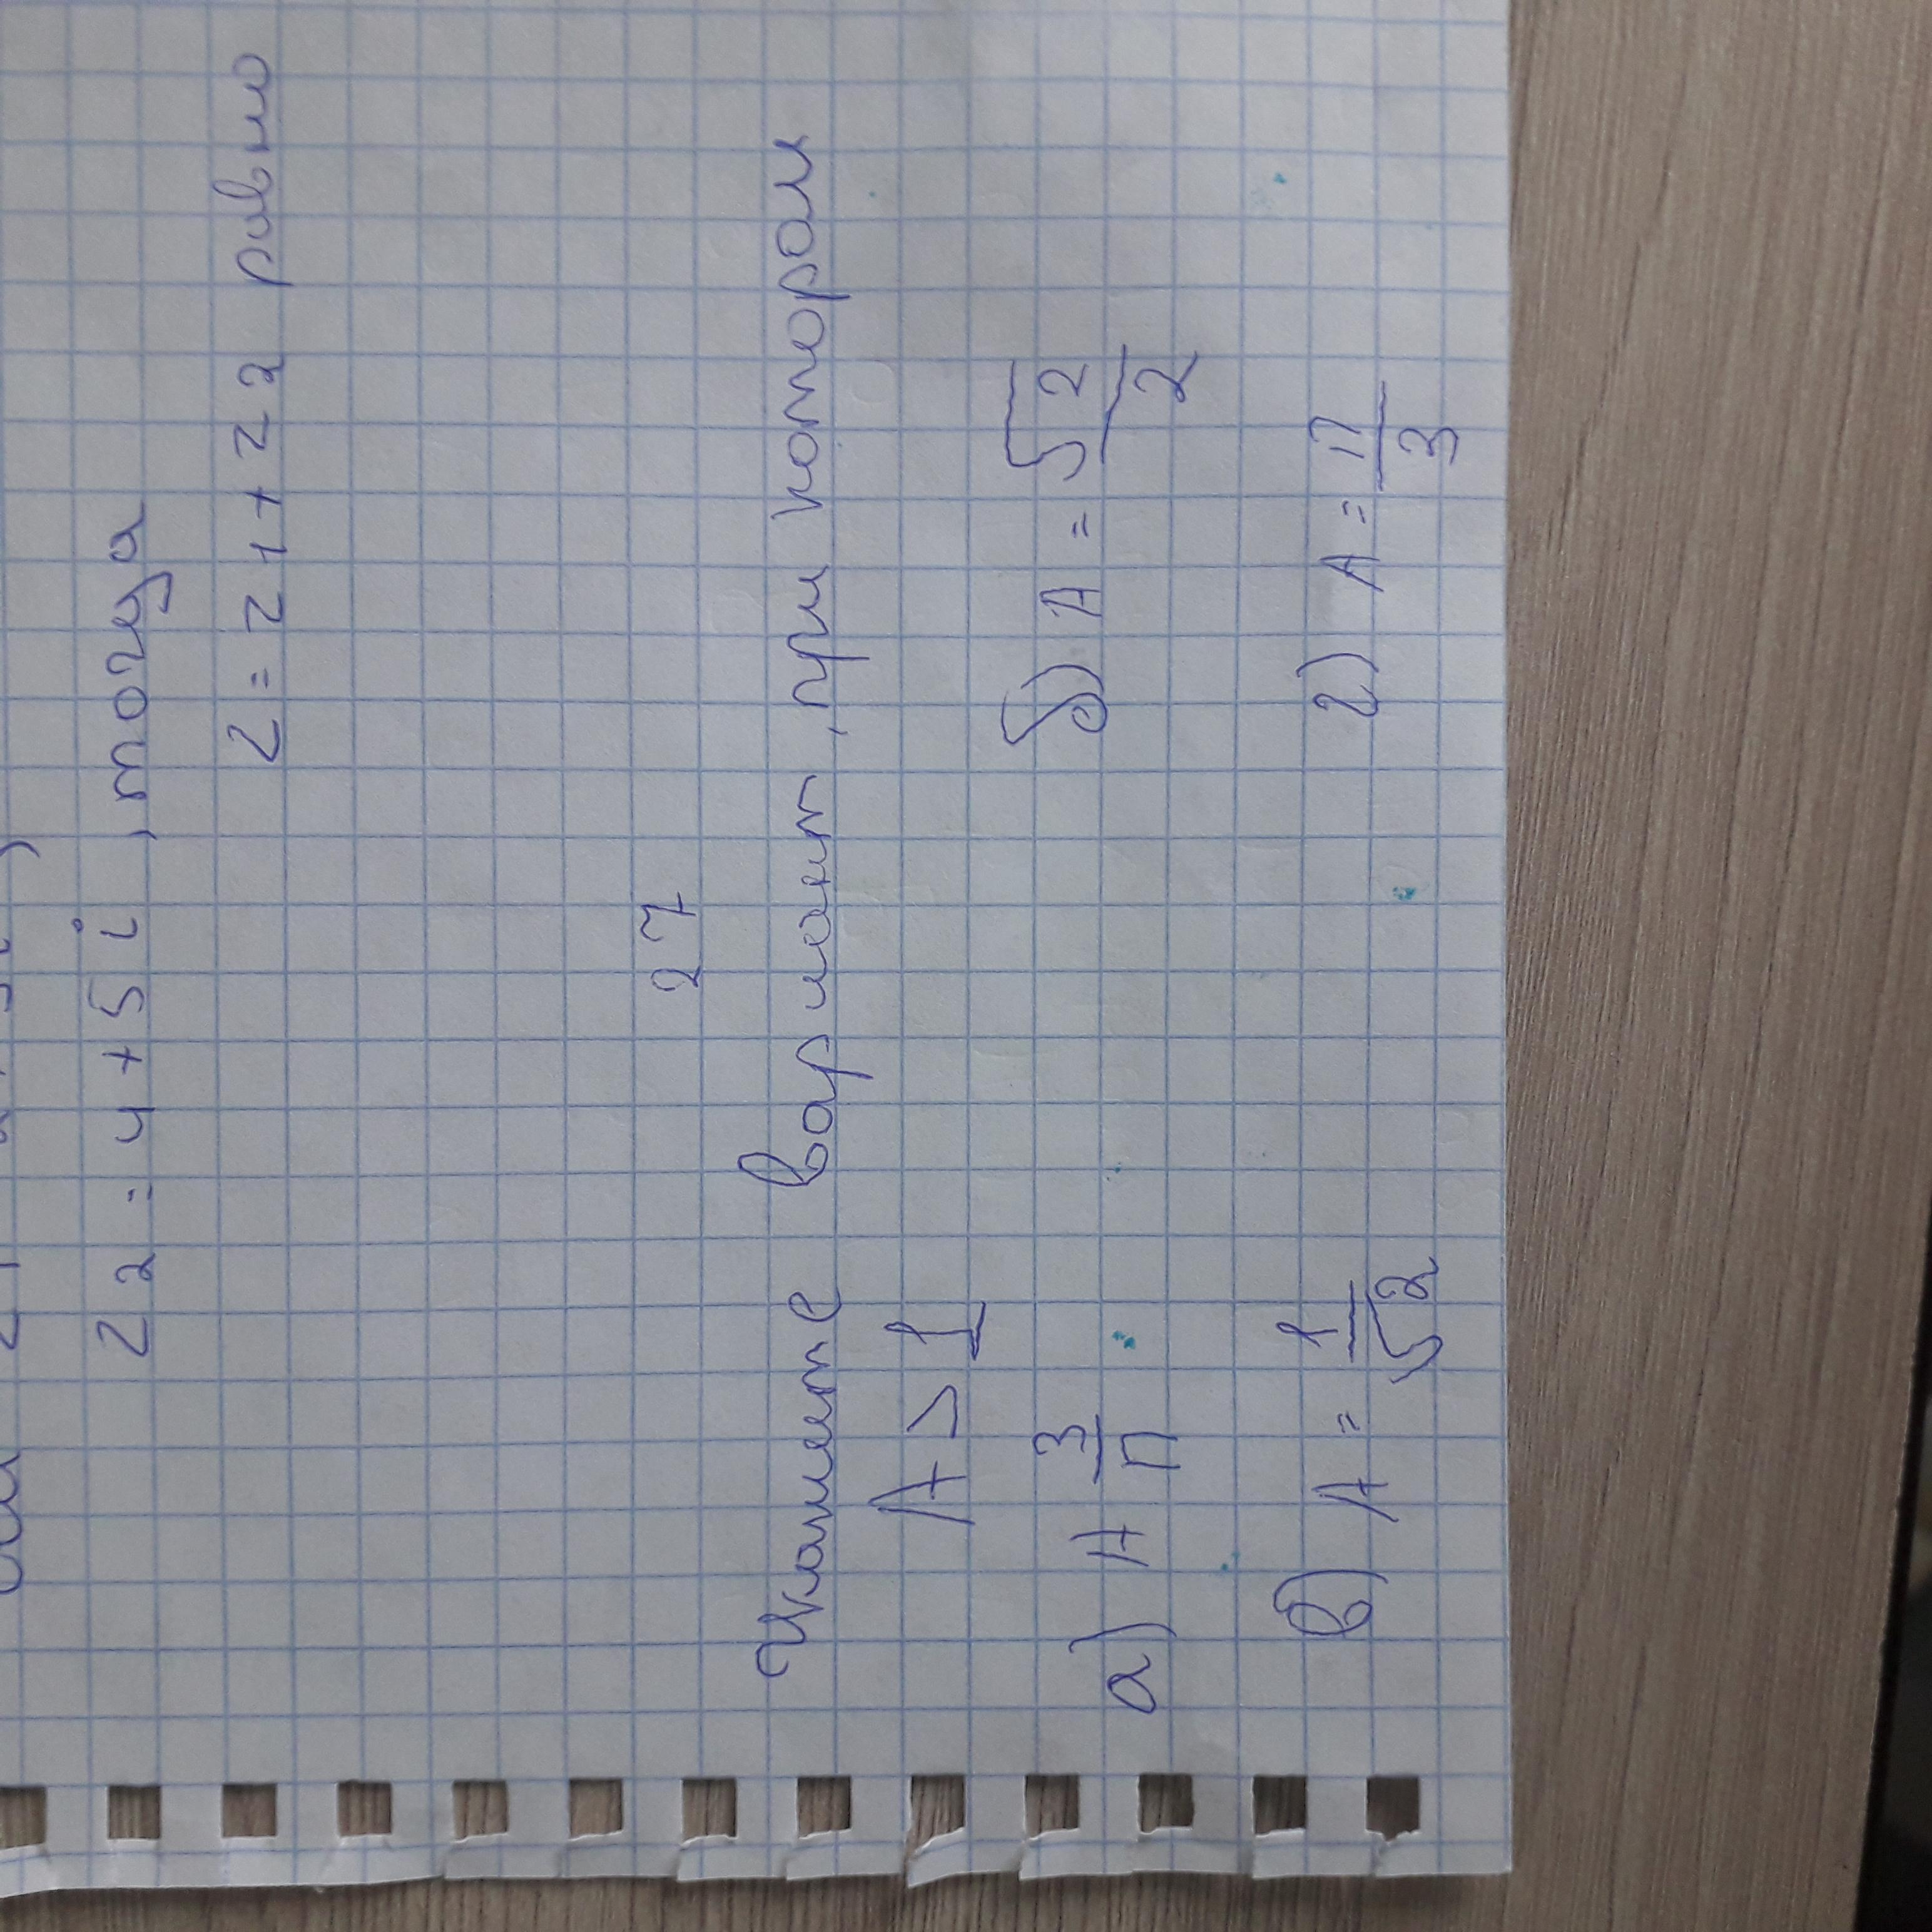 z2 = 4 + 5i , тогда
z = z1 + z2 равно
27
Укажите вариант, при котором
A > 1
а) A 3/π б) A = √2/2
в) A = 1/√2 г) A = π/3